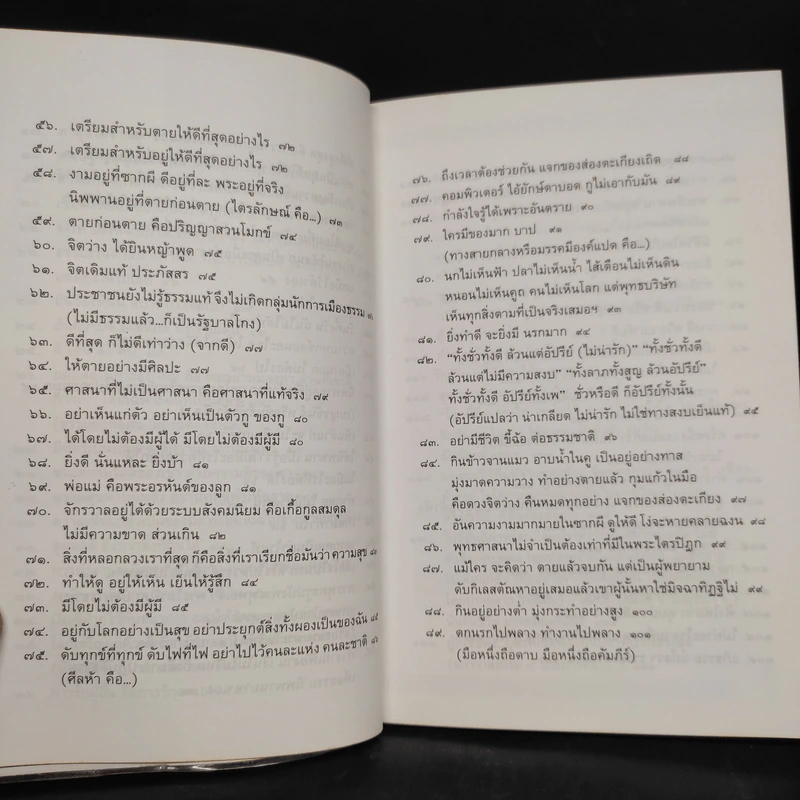 ๕๖. เตรียมสำหรับตายให้ดีที่สุดอย่างไร ๗๒
๕๗. เตรียมสำหรับอยู่ให้ดีที่สุดอย่างไร ๗๒
๕๘. งามอยู่ที่ซากผี ดีอยู่ที่ละ พระอยู่ที่จริง
นิพพานอยู่ที่ตายก่อนตาย (ไตรลักษณ์ คือ...) ๗๓
๕๙. ตายก่อนตาย คือปริญญาสวนโมกข์ ๗๔
๖๐. จิตว่าง ได้ยินหญ้าพูด ๗๕
๖๑. จิตเดิมแท้ ประภัสสร ๗๕
๖๒. ประชาชนยังไม่รู้ธรรมแท้ จึงไม่เกิดกลุ่มนักการเมืองธรรม
(ไม่มีธรรมแล้ว...ก็เป็นรัฐบาลโกง)
๖๓. ดีที่สุด ก็ไม่ดีเท่าว่าง (จากดี) ๗๗
๖๔. ให้ตายอย่างมีศิลปะ ๗๗
๖๕. ศาสนาที่ไม่เป็นศาสนา คือศาสนาที่แท้จริง ๗๙
๖๖. อย่าเห็นแก่ตัว อย่าเห็นเป็นตัวกู ของกู ๘๐
๖๗. ได้โดยไม่ต้องมีผู้ได้ มีโดยไม่ต้องมีผู้มี ๘๐
๖๘. ยิ่งดี นั่นแหละ ยิ่งบ้า ๘๑
๖๙. พ่อแม่ คือพระอรหันต์ของลูก ๘๑
๗๐. จักรวาลอยู่ได้ด้วยระบบสังคมนิยม คือเกื้อกูลสมดุล
ไม่มีความขาด ส่วนเกิน ๘๒
๗๑. สิ่งที่หลอกลวงเราที่สุด ก็คือสิ่งที่เราเรียกชื่อมันว่า ความสุข
๗๒. ทำให้ดู อยู่ให้เห็น เย็นให้รู้สึก ๘๔
๗๓. มีโดยไม่ต้องมีผู้มี ๘๕
๗๔. อยู่กับโลกอย่างเป็นสุข อย่าประยุกต์สิ่งทั้งผองเป็นของฉัน ๘๕
๗๕. ดับทุกข์ที่ทุกข์ ดับไฟที่ไฟ อย่าไปไว้คนละแห่ง คนละชาติ ๘๖
(ศีลห้า คือ...)
๗๖. ถึงเวลาต้องช่วยกัน แจกของส่องตะเกียงเถิด ๘๘
๗๗. คอมพิวเตอร์ ไอ้ยักษ์ตาบอด กูไม่เอากับมัน ๘๙
๗๘. กำลังใจรู้ได้เพราะอันตราย ๙๐
๗๙. ใครมีของมาก บาป ๙๑
(ทางสายกลางหรือมรรคมีองค์แปด คือ...)
๘๐. นกไม่เห็นฟ้า ปลาไม่เห็นน้ำ ไส้เดือนไม่เห็นดิน
หนอนไม่เห็นคูถ คนไม่เห็นโลก แต่พุทธบริษัท
เห็นทุกสิ่งตามที่เป็นจริงเสมอฯ ๙๓
๘๑. ยิ่งทำดี จะยิ่งมี นรกมาก ๙๔
๘๒. “ทั้งชั่วทั้งดี ล้วนแต่อัปรีย์ (ไม่น่ารัก)” “ทั้งชั่วทั้งดี
ล้วนแต่ไม่มีความสงบ” “ทั้งลาภทั้งสูญ ล้วนอัปรีย์”
ทั้งชั่วทั้งดี อัปรีย์ทั้งเพ” ชั่วหรือดี ก็อัปรีย์ทั้งนั้น
(อัปรีย์แปลว่า น่าเกลียด ไม่น่ารัก ไม่ใช่ทางสงบเย็นแท้) ๙๕
๘๓. อย่ามีชีวิต ขี้ฉ้อ ต่อธรรมชาติ ๙๖
๘๔. กินข้าวจานแมว อาบน้ำในคู เป็นอยู่อย่างทาส
มุ่งมาดความว่าง ทำอย่างตายแล้ว กุมแก้วในมือ
คือดวงจิตว่าง คืนหมดทุกอย่าง แจกของส่องตะเกียง ๙๗
๘๕. อันความงามมากมายในซากผี ดูให้ดี โง่จะหายคลายฉงน ๙๘
๘๖. พุทธศาสนาไม่จำเป็นต้องเท่าที่มีในพระไตรปิฎก ๙๙
๘๗. แม้ใคร จะคิดว่า ตายแล้วจบกัน แต่เป็นผู้พยายาม
ดับกิเลสตัณหาอยู่เสมอแล้วเขาผู้นั้นหาใช่มิจฉาทิฏฐิไม่ ๙๙
๘๘. กินอยู่อย่างต่ำ มุ่งกระทำอย่างสูง ๑๐๐
๘๙. ตกนรกไปพลาง ทำงานไปพลาง ๑๐๑
(มือหนึ่งถือดาบ มือหนึ่งถือคัมภีร์)